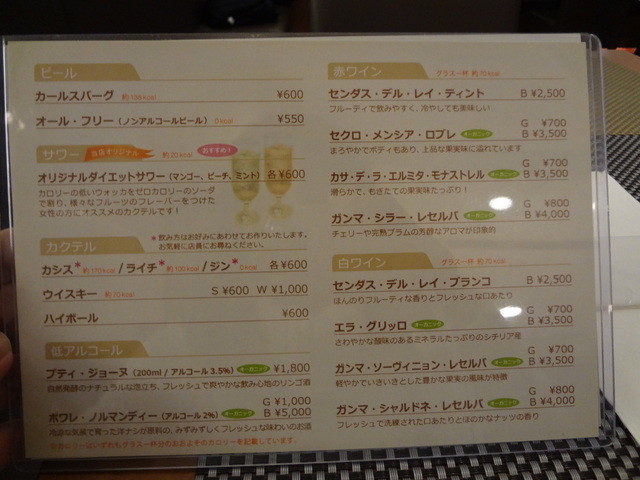 ビール
カールスバーグ 約134kcal ¥600
オール・フリー（ノンアルコールビール） 0kcal ¥550
サワー 当店オリジナル 約20kcal おすすめ！
オリジナルダイエットサワー（マンゴー、ピーチ、ミント） 各¥600
カロリーの低いウォッカをゼロカロリーのソーダ
で割り、様々なフルーツのフレーバーをつけた
女性の方にオススメのカクテルです！
カクテル
*飲み方はお好みにあわせてお作りいたします。
お気軽に店員にお尋ねください。
カシス* 約170kcal /ライチ* 約100kcal /ジン* 0kcal 各¥600
ウイスキー 約70kcal S ¥600 W ¥1,000
ハイボール ¥600
低アルコール
プティ・ジョーヌ（200ml / アルコール 3.5%） オーガニック ¥1,800
自然発酵のナチュラルな泡立ち、フレッシュで爽やかな飲み心地のリンゴ酒
G ¥1,000
ポワレ・ノルマンディー（アルコール 2%） オーガニック B ¥5,000
冷涼な気候で育った洋ナシが原料の、みずみずしくフレッシュな味わいのお酒
赤ワイン グラス一杯 約70kcal
センダス・デル・レイ・ティント B ¥2,500
フルーティで飲みやすく、冷やしても美味しい
G ¥700
セクロ・メンシア・ロブレ オーガニック B ¥3,500
まろやかでボディもあり、上品な果実味に溢れています
G ¥700
カサ・デ・ラ・エルミタ・モナストレル オーガニック B ¥3,500
滑らかで、もぎたての果実味たっぷり！
G ¥800
ガンマ・シラー・レセルバ オーガニック B ¥4,000
チェリーや完熟プラムの芳醇なアロマが印象的
白ワイン グラス一杯 約70kcal
センダス・デル・レイ・ブランコ B ¥2,500
ほんのりフルーティな香りとフレッシュな口あたり
G ¥700
エラ・グリッロ オーガニック B ¥3,500
さわやかな酸味のあるミネラルたっぷりのシチリア産
G ¥700
ガンマ・ソーヴィニョン・レセルバ オーガニック B ¥3,500
軽やかでいきいきとした豊かな果実の風味が特徴
G ¥800
ガンマ・シャルドネ・レセルバ オーガニック B ¥4,000
フレッシュで洗練された口あたりとほのかなナッツの香り